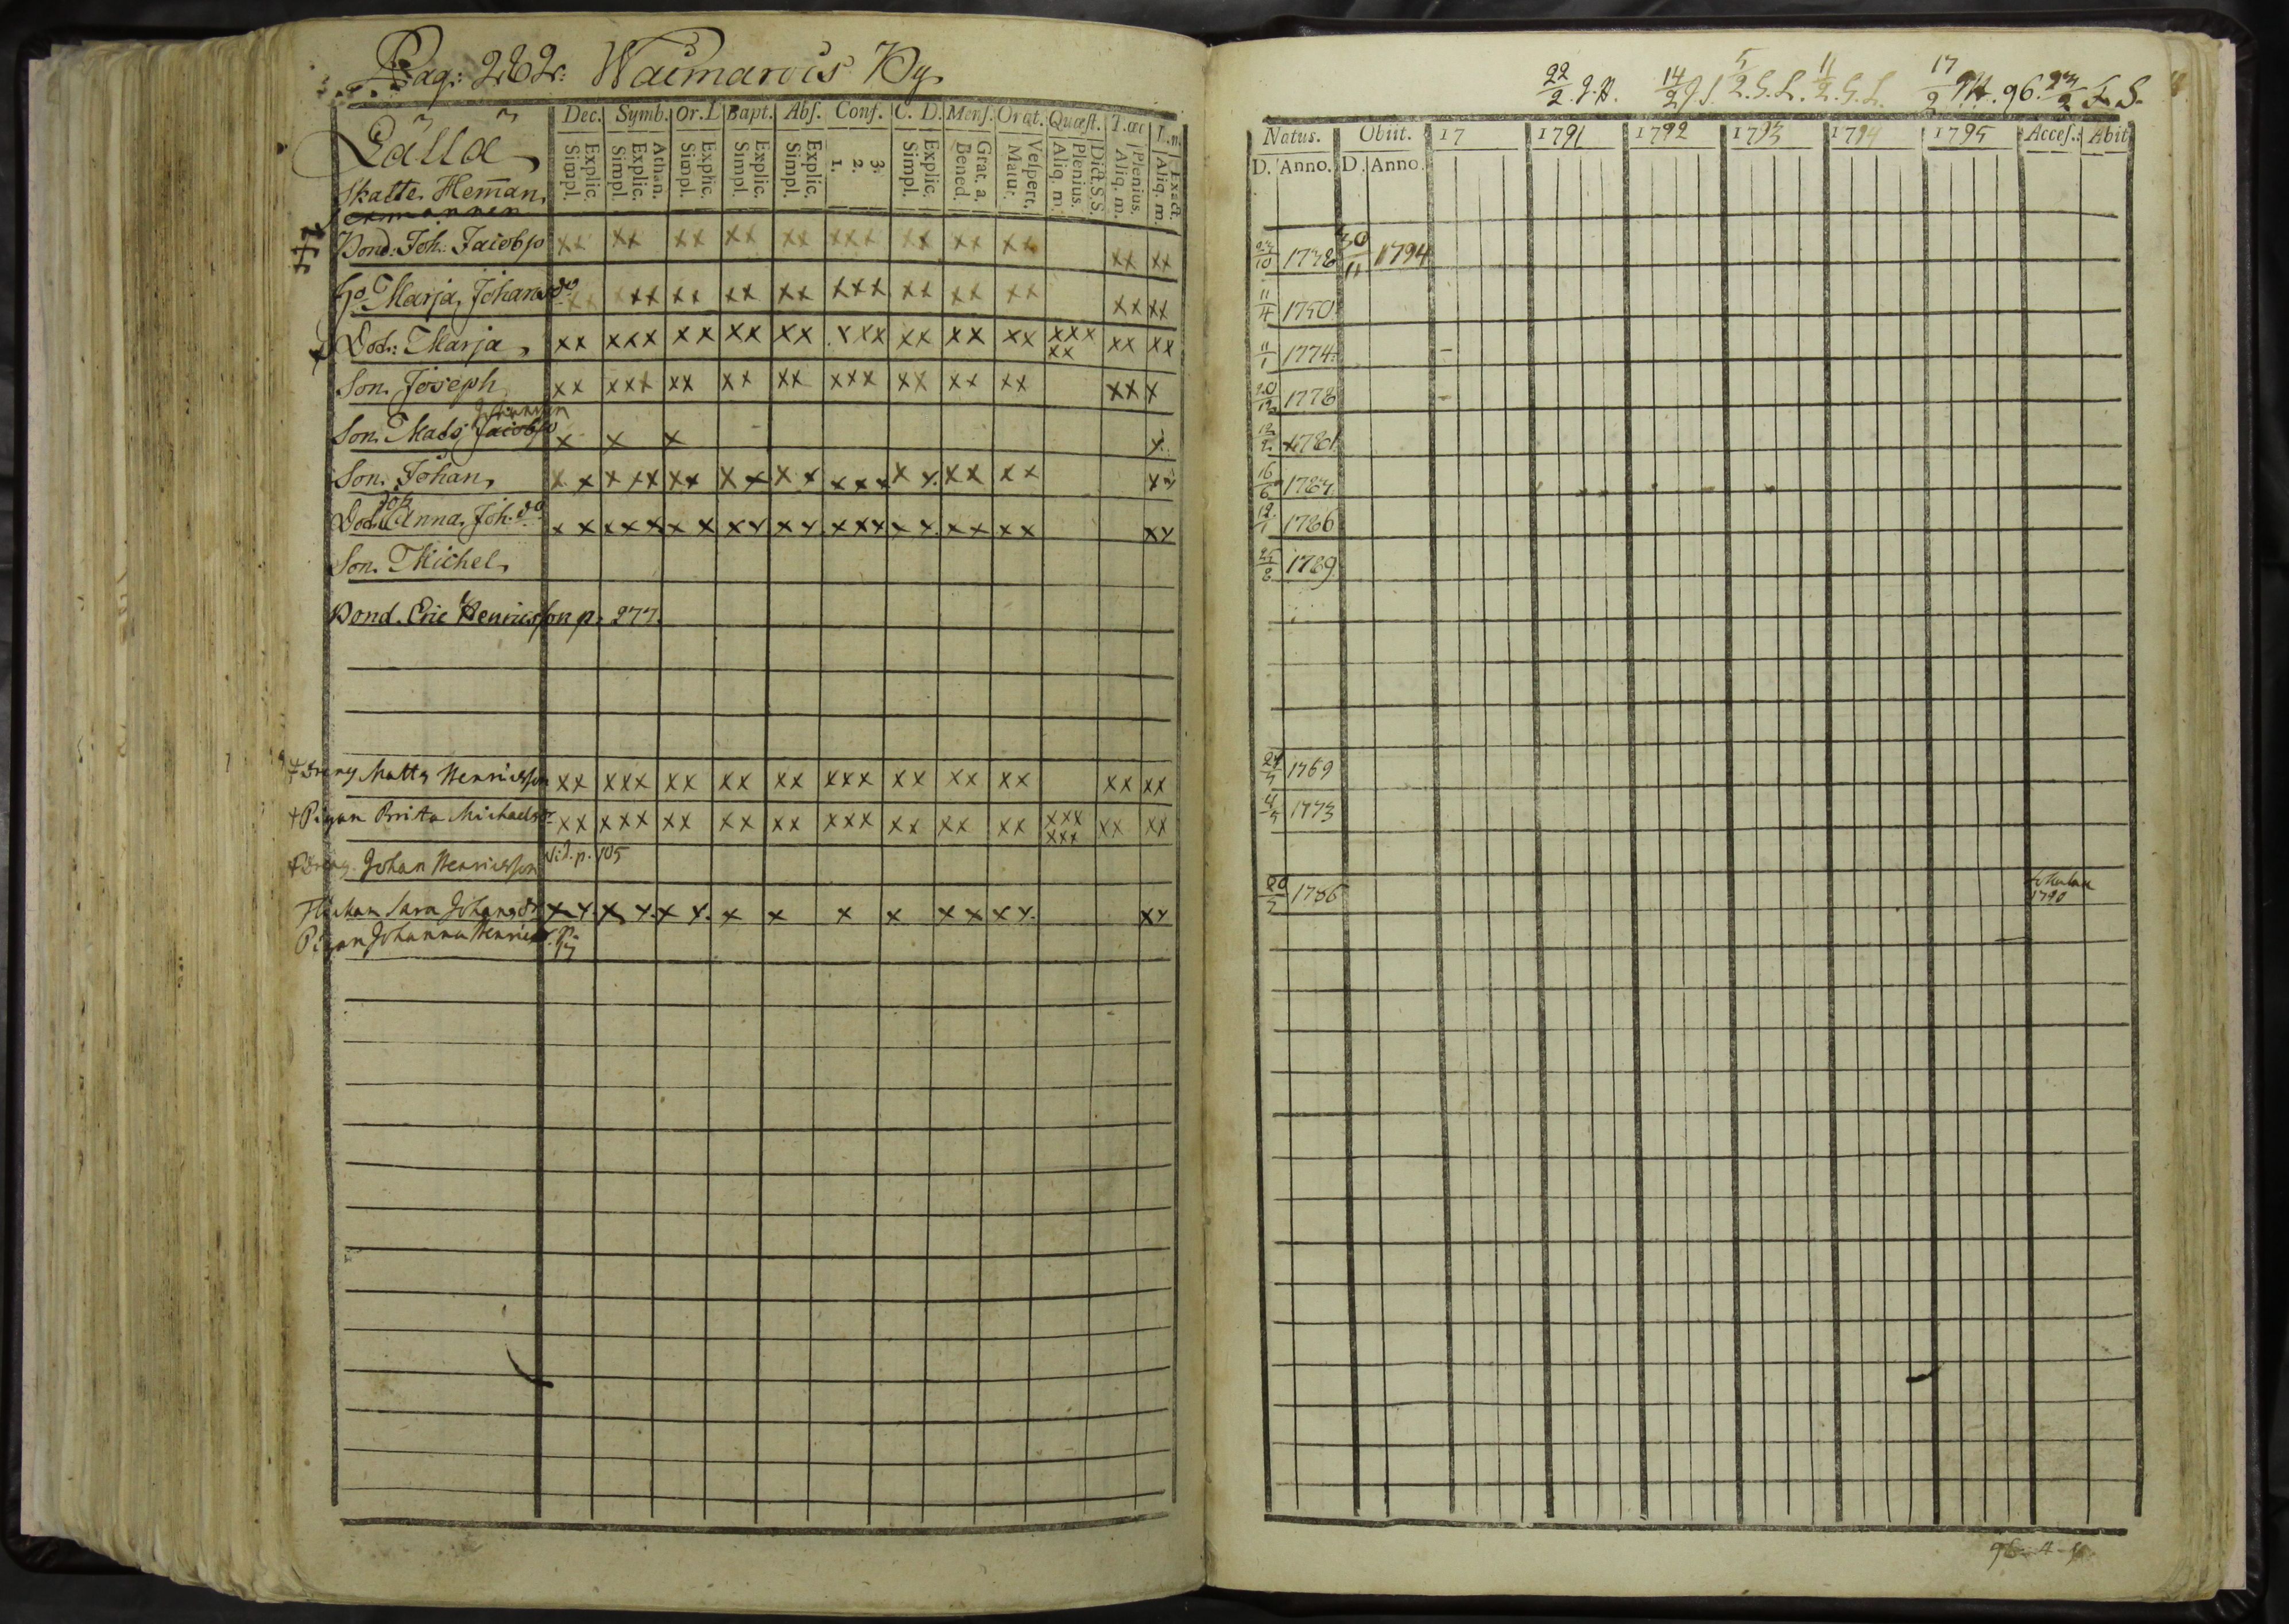 Pag: 282. Waimarois By.
Lällä
Skatte. Heman.
Dec. Symb. Or. D. Bapt. Abs. Conf. C. D. Mens. Orat. Quæst. T. œc L. n.
Explic. Simpl. Athan. Explic. Simpl. Explic. Simpl. Explic. Simpl. Explic. Simpl. 3. 2. 1. Explic. Simpl. Grat. a. Bened. Vespert. Matut. Dict. S.S. Plenius. Aliq. m. Plenius. Aliq. m. Exact. Aliq. m.
Bond. Joh: Jacobso xx xx xx xx xx xxx xx xx xx xx xx
Ho. Marja, Johansdo xx xxx xx xx xx xxx xx xx xx xx xx
Dod: Marja, xx xxx xx xx xx xxx xx xx xx xxx xx xx xx
Son. Joseph xx xxx xx xx xx xxx xx xx xx xx x
Johansson
Son. Mads Jacobso x x x x
Son. Johan, x x x xx xx x x x x x x x x x. xx x x x
Dod. Anna. Joh. do x x x x x x x x x x x. x x x x x. x x x x x x
Son. Michel,
Bond. Eric Henricsson p. 277.
Dreng Matts Henricsson xx xxx xx xx xx xxx xx xx xx xx xx
Pigan Brita Michaelsdr xx xxx xx xx xx xxx xx xx xx xxx xxx xx xx
Dreng. Johan Henricsson Vid. p. 105
Flickan Sara Johansdr x x. x x. x x. x x x x x x x x. x x
Pigan Johanna Henricsdr
22/2. J. H. 14/2 J S 5/2. G. L. 11/2. G. L. 17/2 96. 23/2 F. S.
Natus. Obiit. 17 1791 1792 1793 1794 1795 Acces. Abit.
D. Anno. D. Anno.
23/10 1748 30/11 1794
11/4 1750
11/1 1774.
20/12 1778
1781
16/6 1783
12/1 1786
25/8 1789
24/5 1769
4/5 1773
20/5 1786 1790